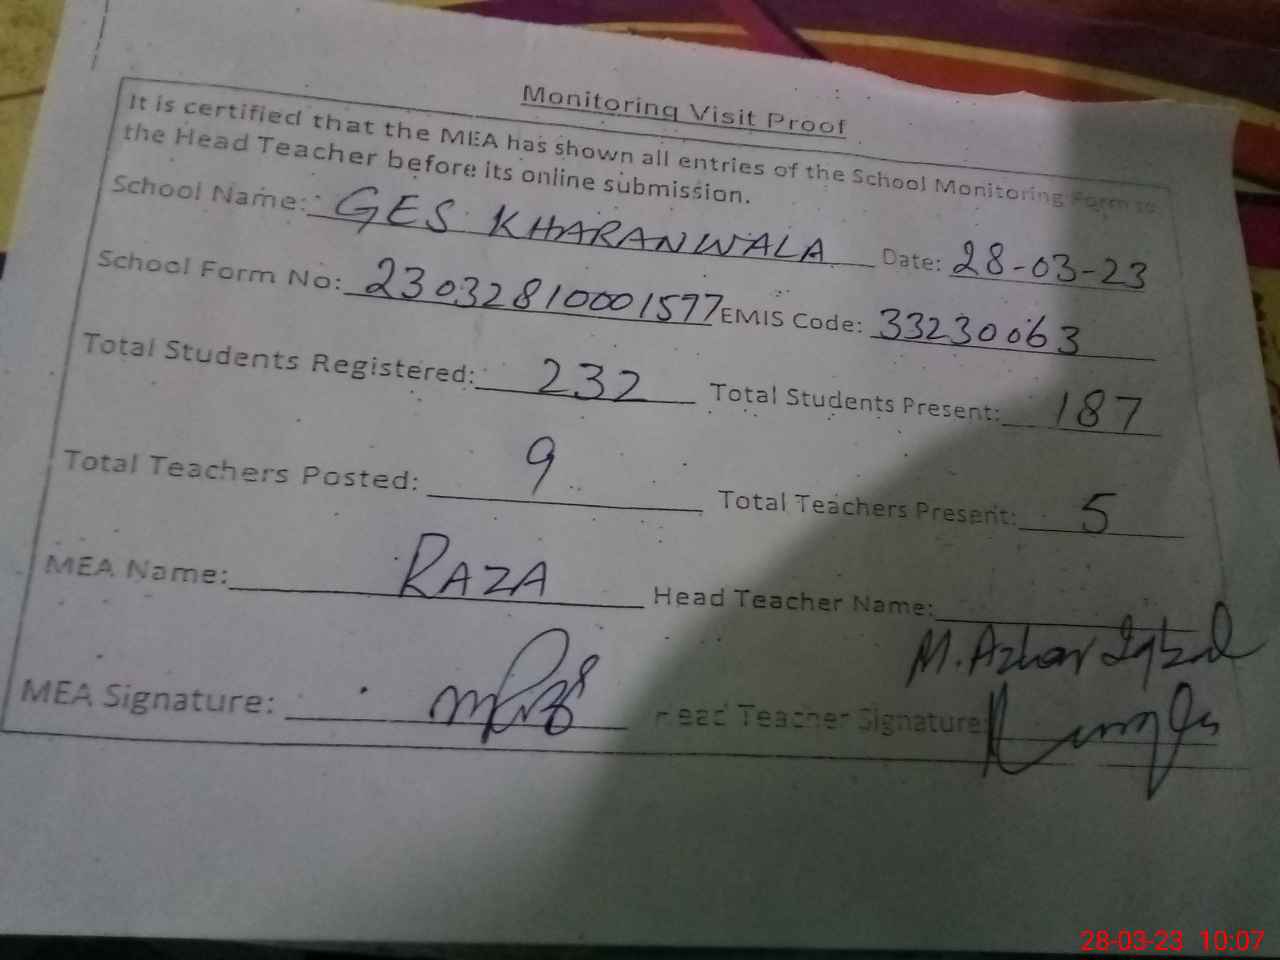 Monitoring Visit Proof
It is certified that the MEA has shown all entries of the School Monitoring Form to
the Head Teacher before its online submission.
School Name: GES KHARANWALA Date: 28-03-23
School Form No: 23032810001577 EMIS Code: 33230063
Total Students Registered: 232 Total Students Present: 187
Total Teachers Posted: 9 Total Teachers Present: 5
MEA Name: RAZA Head Teacher Name:
M. Azhar Iqbal
MEA Signature: Head Teacher Signature
28-03-23 10:07